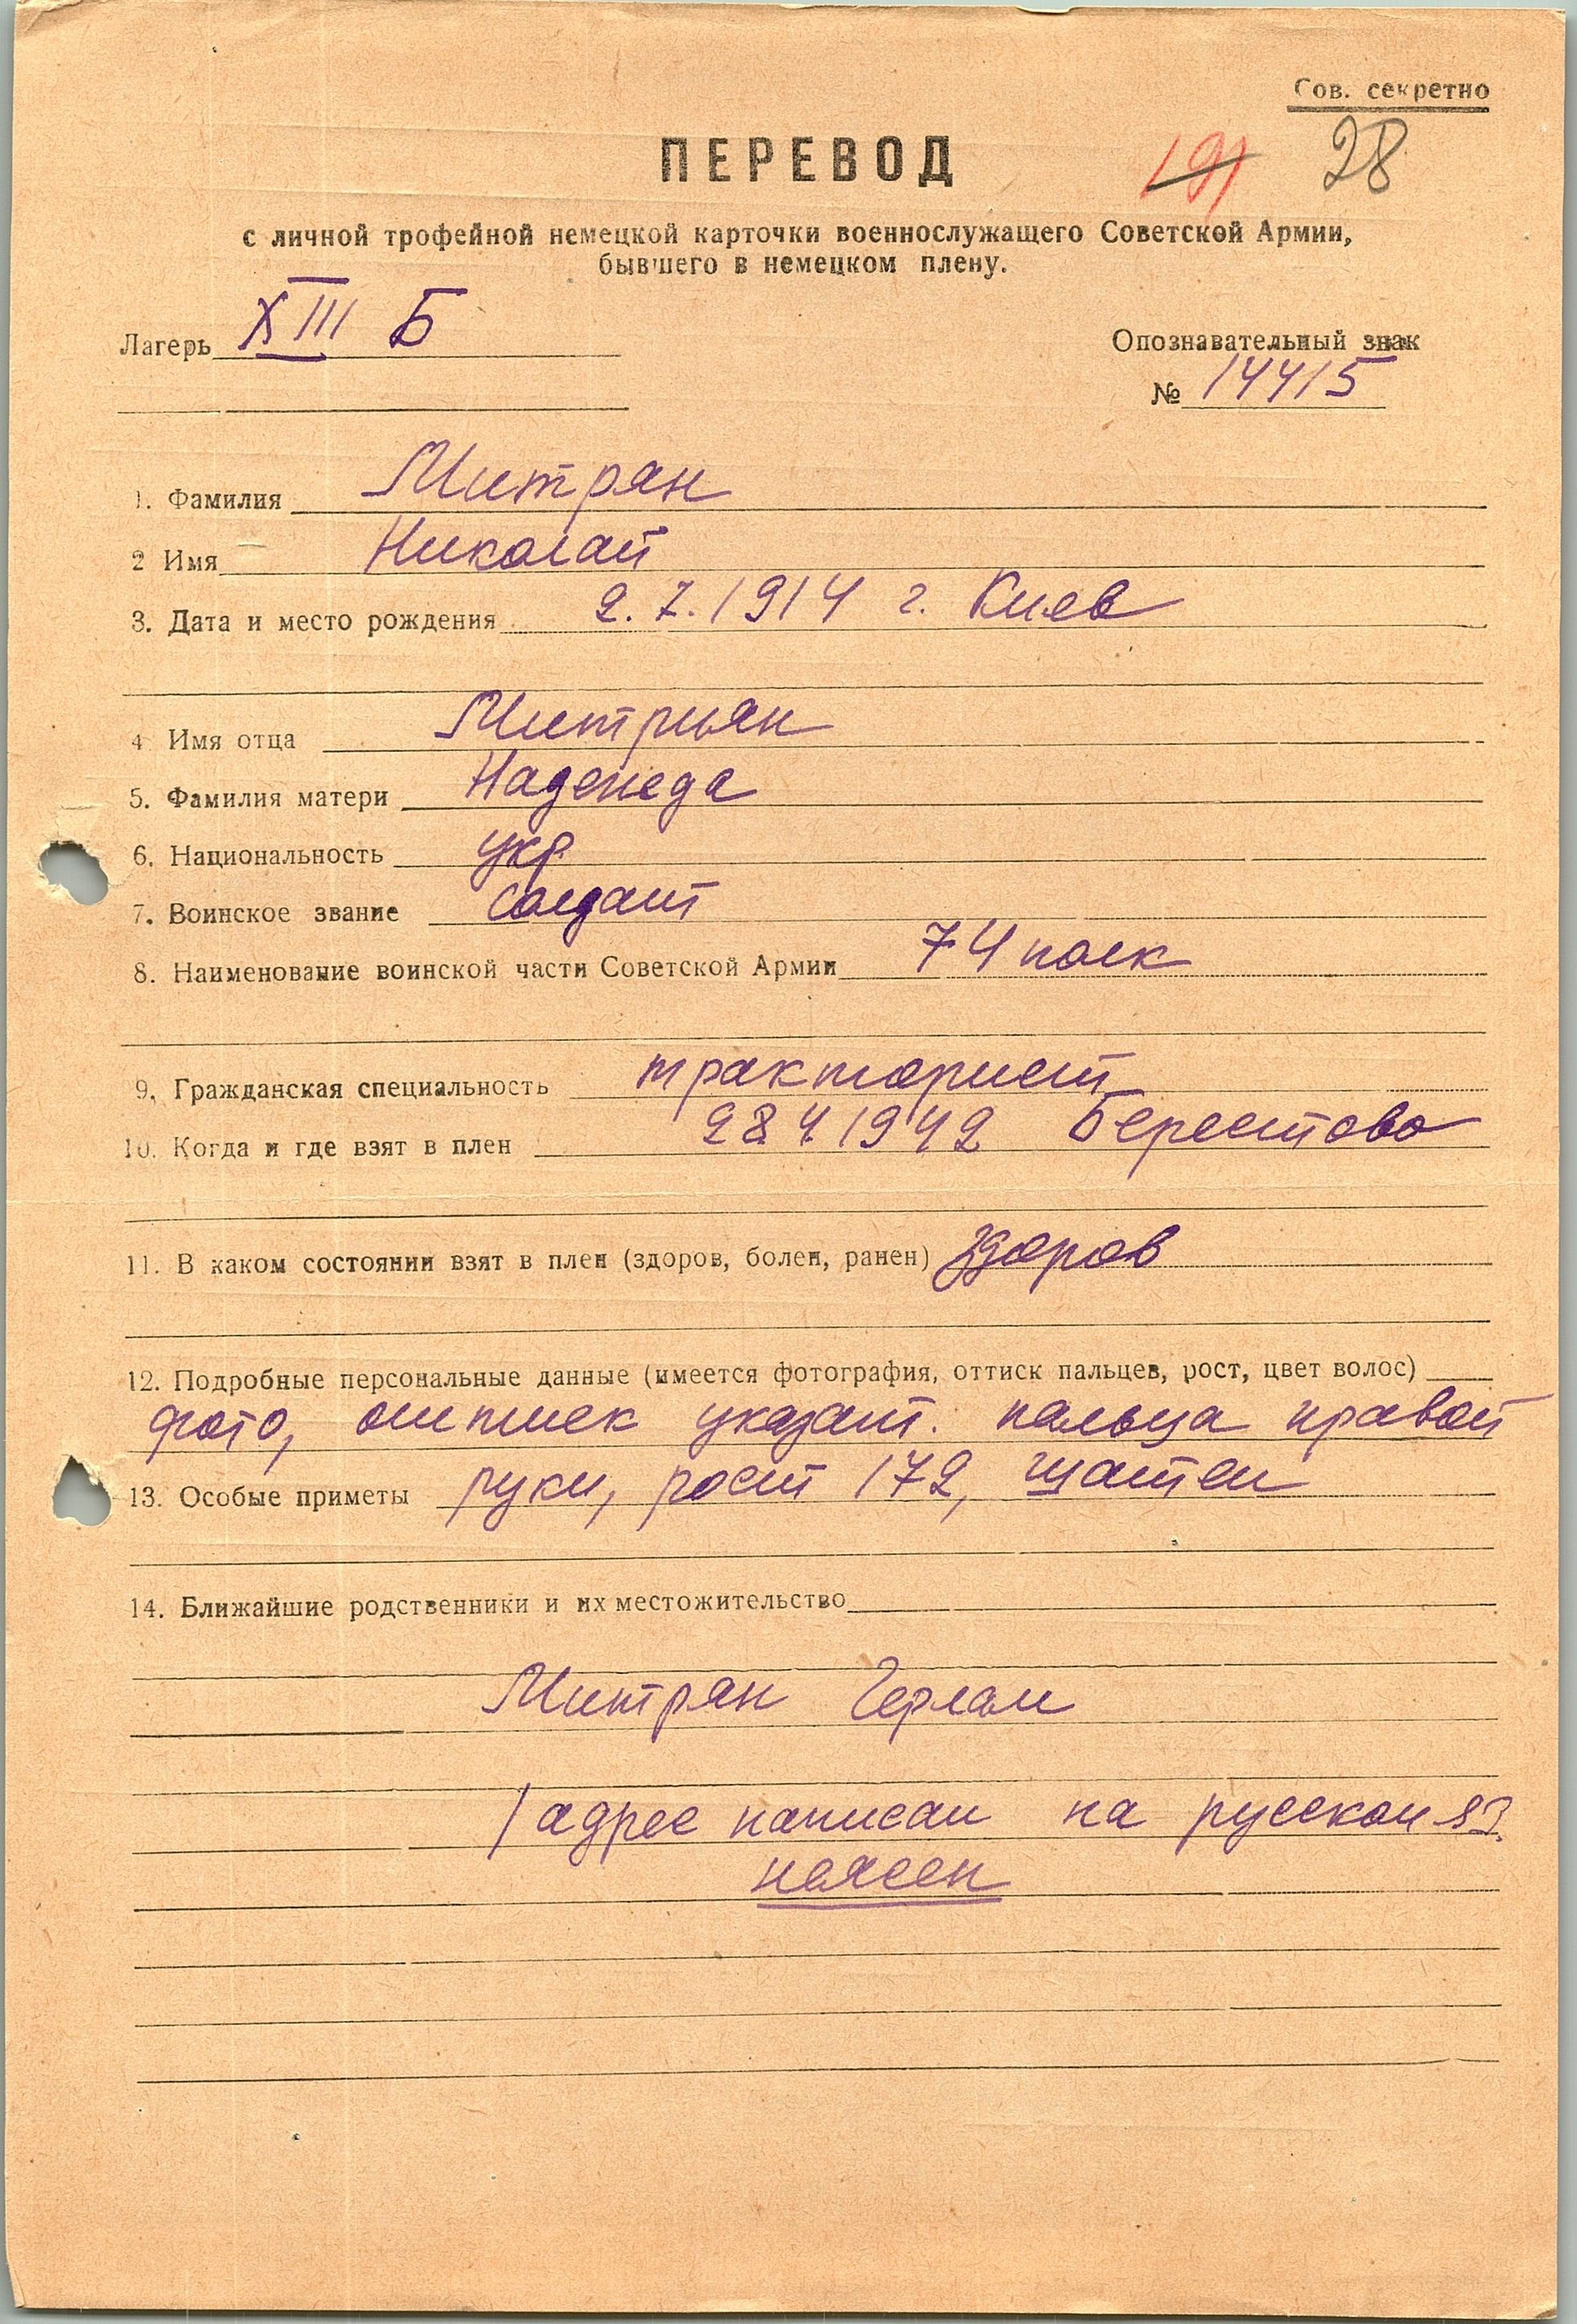 Сов. секретно
ПЕРЕВОД
191 28
с личной трофейной немецкой карточки военнослужащего Советской Армии,
бывшего в немецком плену.
Лагерь XIII Б
Опознавательный знак
№ 14415
1. Фамилия Митрян
2 Имя Николай
3. Дата и место рождения 2.7.1914 г. Киев
4 Имя отца Митриян
5. Фамилия матери Надежда
6. Национальность укр.
7. Воинское звание солдат
8. Наименование воинской части Советской Армии 74 полк
9. Гражданская специальность тракторист
10. Когда и где взят в плен 28.4.1942 Берестово
11. В каком состоянии взят в плен (здоров, болен, ранен) здоров
12. Подробные персональные данные (имеется фотография, оттиск пальцев, рост, цвет волос)
фото, оттиск указат. пальца правой
13. Особые приметы руки, рост 172, шатен
14. Ближайшие родственники и их местожительство
Митрян
/ адрес написан на русском яз.
неясен